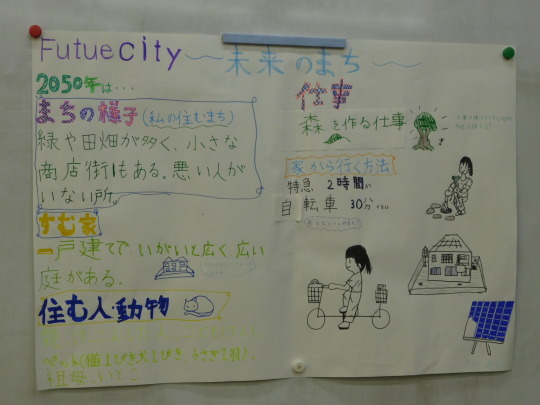 Futuecity 〜未来のまち〜
2050年は…
まちの様子(私の住むまち)
緑や田畑が多く、小さな
商店街もある。悪い人が
いない所。
すむ家
一戸建てで いがいと広く 広い
庭がある。
住む人・動物
ペット(猫1ぴき犬1ぴき、うさぎ1羽)、
祖母、いとこ
仕事
森を作る仕事
家から行く方法
特急 2時間
自転車 30分